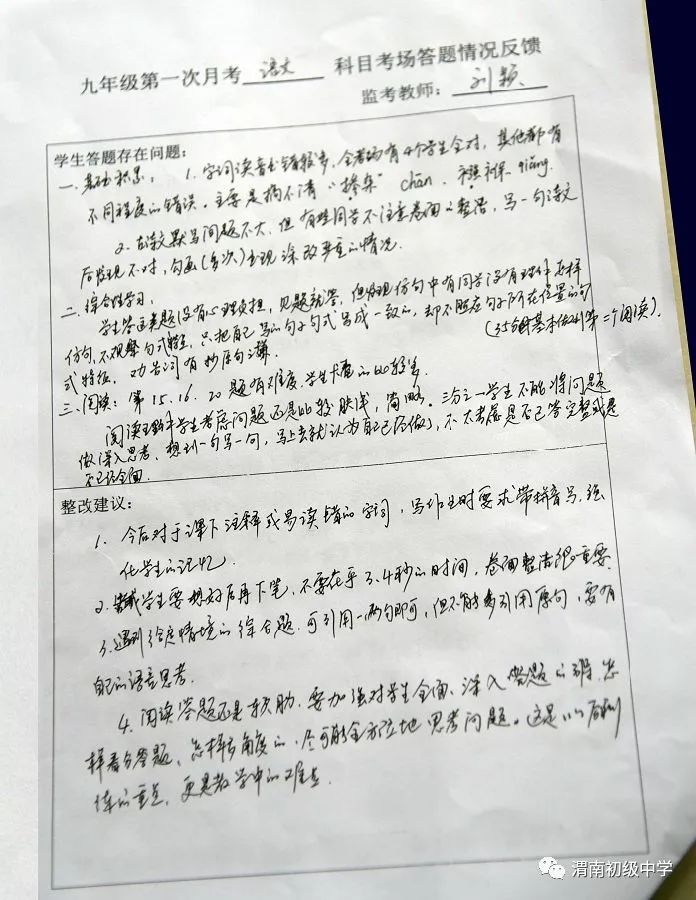 九年级第一次月考 语文 科目考场答题情况反馈
监考教师： 刘颖
学生答题存在问题：
一、基础积累： 1. 字词读音出错较多，全考场有4个学生全对，其他都有
不同程度的错误。主要是搞不清“掺杂” chān、襁褓 qiǎng.
2. 古诗文默写问题不大，但有些同学不注意卷面的整洁，写一句诗文
后发现不对，勾画(多次)出现涂改严重的情况.
二、综合性学习：
学生答这类题没有心理负担，见题就答，但发现仿句中有同学没有
仿句，不观察句式特点，只把自己写的句子句式写成一致的，却不照应句子所在位置的句
式特征，
(35分钟基本做到第二个阅读).
三、阅读：第15、16、20题有难度，学生
阅读 学生考虑问题还是比较肤浅，简略。三分之一学生不能将问题
做深入思考，想到一句写一句，马上去就认为自己已经做了，不去考虑是否已答完整或是
否已经全面.
整改建议：
1. 今后对于课下注释或易读错的字词，写作业时要求带拼音写，强
化学生的记忆.
2. 学生要想好后再下笔，不要在乎3、4秒的时间，卷面整洁很重要.
3. 遇到给定情境的综合题，可引用一两句即可，但不能多引用原句，要有
自己的语言思考.
4. 阅读答题还是较失分，要加强对学生全面、深入答题的 怎
样看分答题，怎样多角度的，尽可能全方位地思考问题。这是
的重点，更是教学中的难点.
渭南初级中学